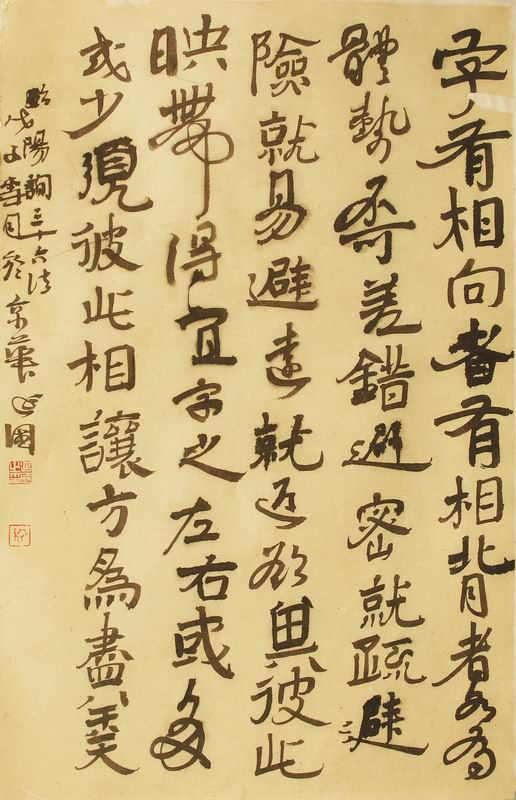 字有相向者有相背者各為
體勢不可差錯避密就疏避
險就易避遠就近欲其彼此
映帶得宜字之左右或多
或少須彼此相讓方為盡
歐陽詢三十六法
戊子雪月於京華國